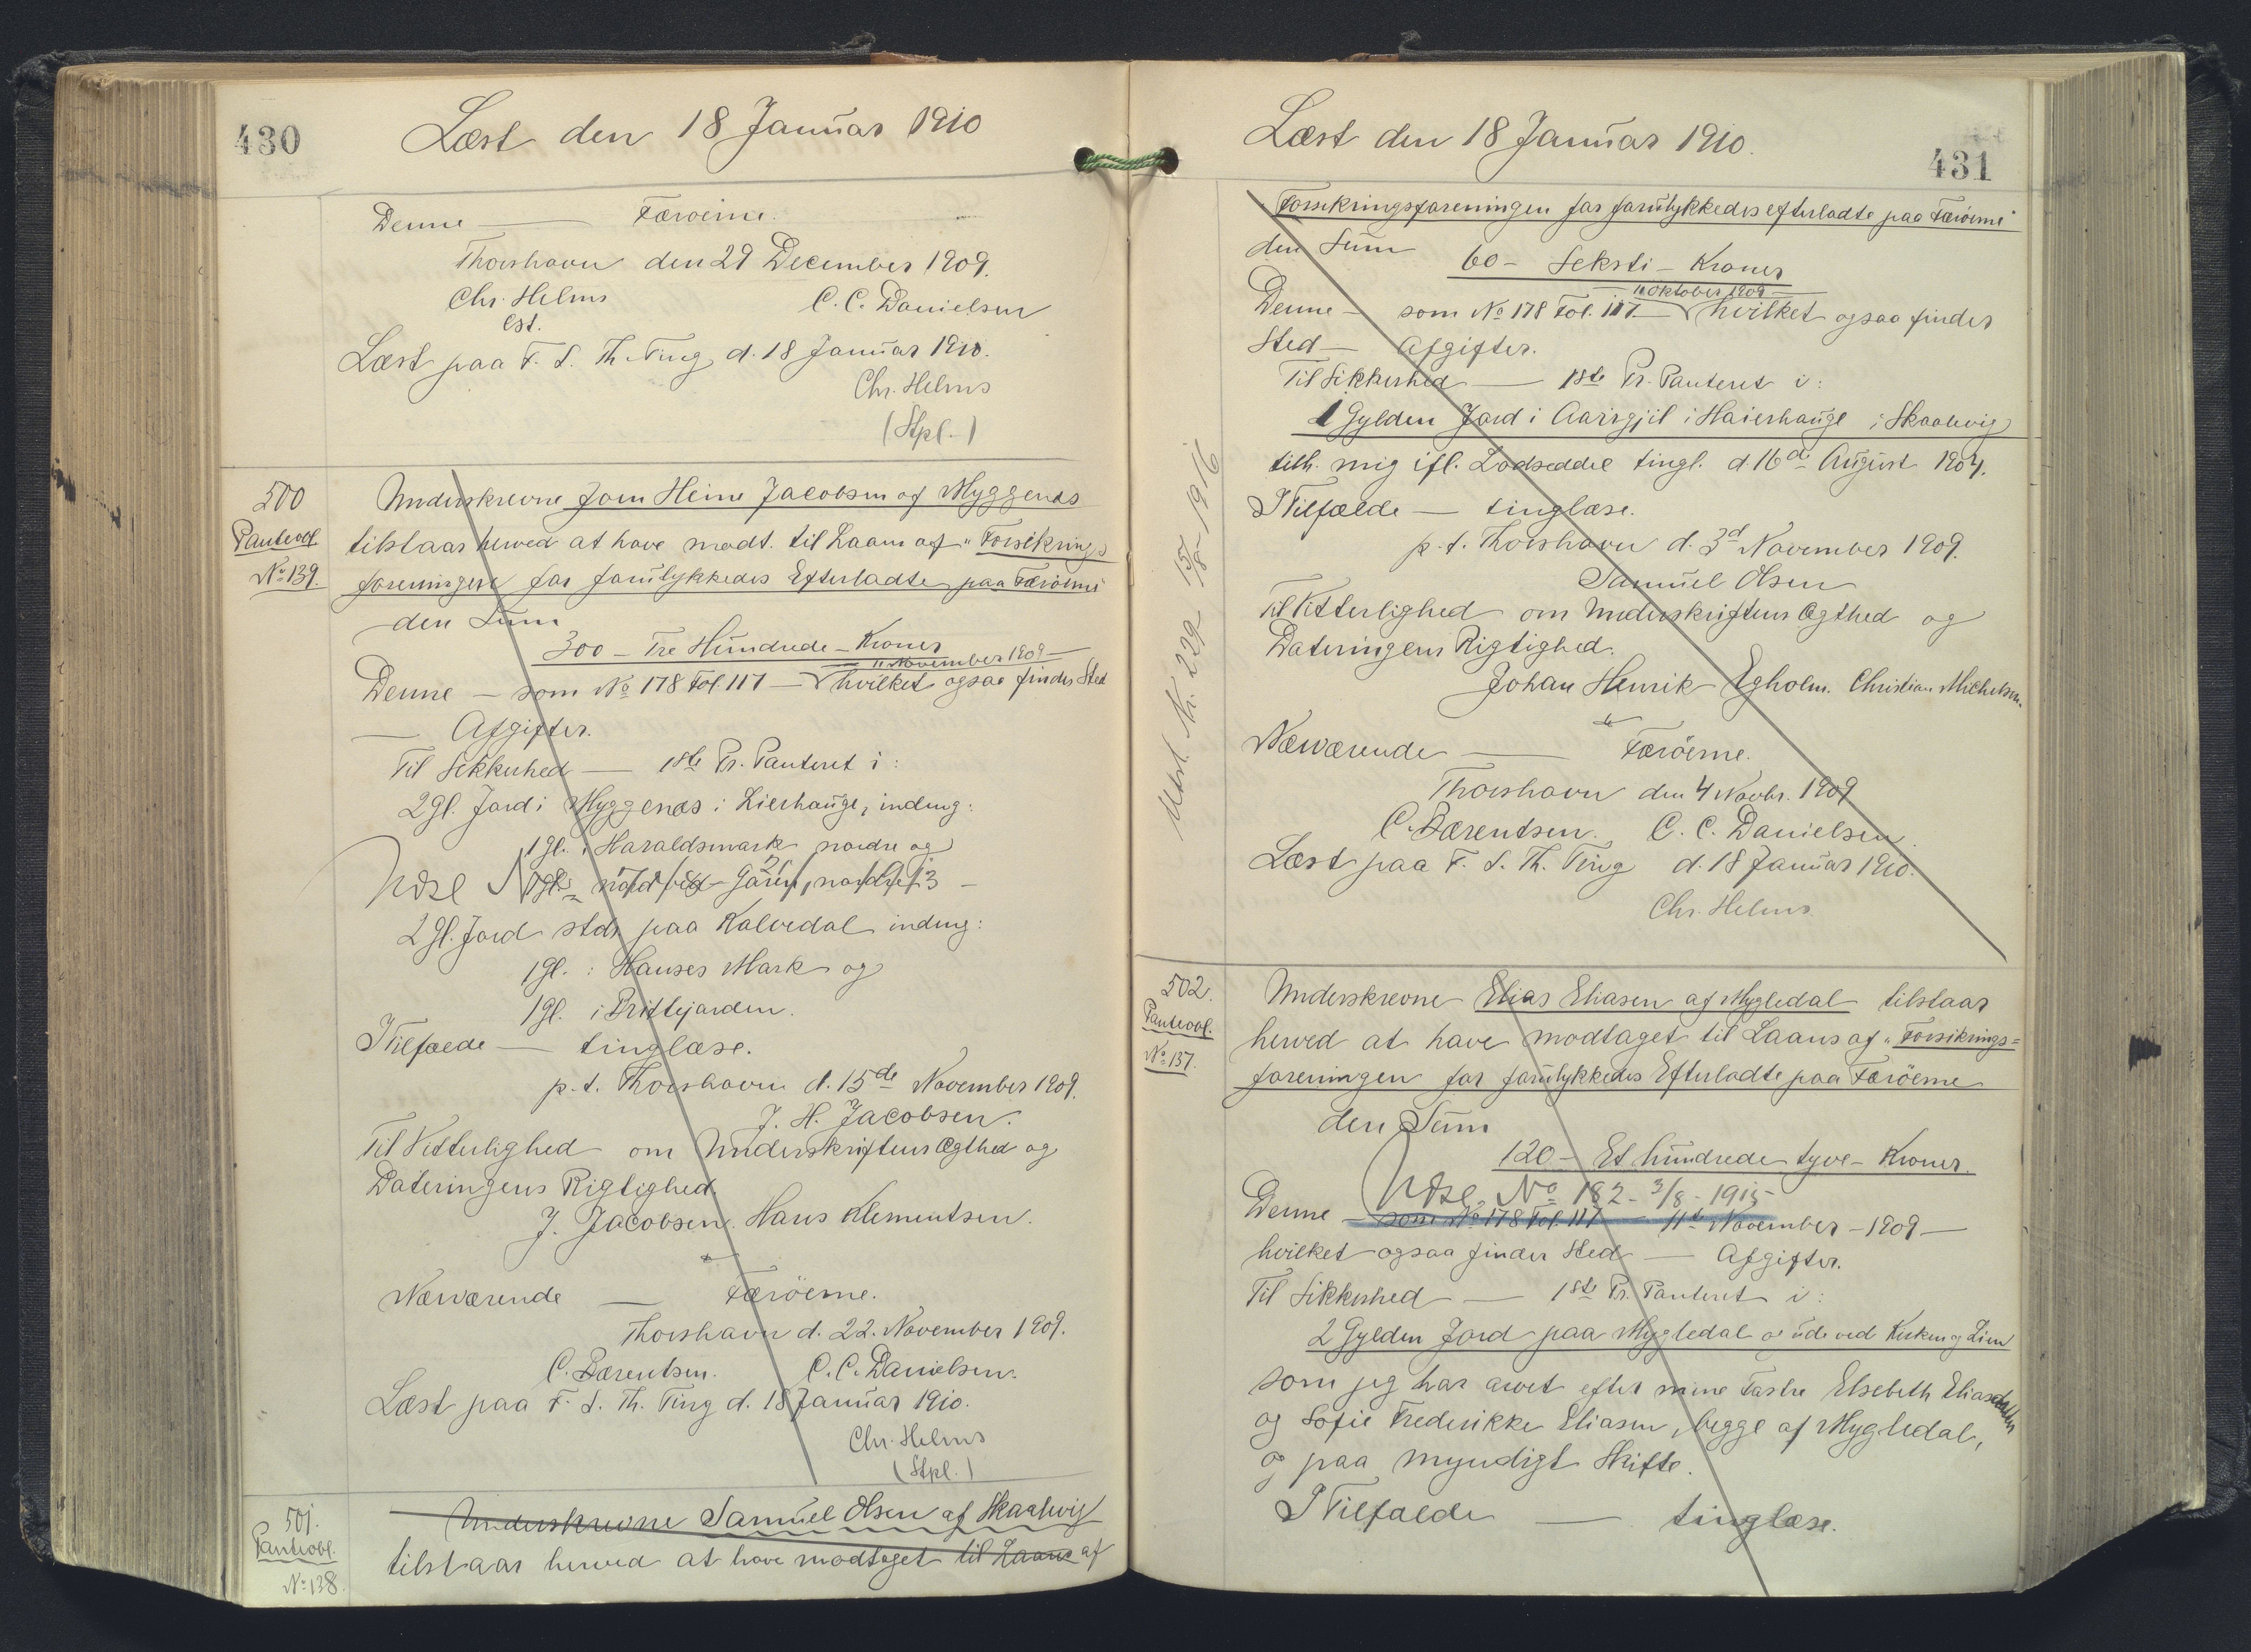 430
Læst den 18 Januar 1910
Denne — Færøerne.
Thorshavn den 29 December 1909.
Chr. Helms C. C. Danielsen
cst.
Læst paa F. S. Th. Ting d. 18 Januar 1910.
Chr. Helms
(Stpl.)
500
Panteobl.
No 139
Underskrevne Joen Heine Jacobsen af Myggenæs
tilstaar herved at have modt. til Laans af "Forsikrings
foreningen for forulykkedes Efterladte paa Færøerne"
den Sum
300 – Tre Hundrede – Kroner
— 11 November 1909 —
Denne — som No 178 Fol. 117 — hvilket ogsaa finder Sted
— Afgifter.
Til Sikkerhed — 1ste Pr. Panteret i:
2 gl. Jord i Myggenæs i Lierhauge, indeng:
1 gl. i Haraldsmark nordre og
2 gl. Jord stds paa Kalvedal indeng:
1 gl. i Hanses Mark og
1 gl. i
I Tilfælde — tinglæse.
p.t. Thorshavn d. 15de November 1909.
J. H. Jacobsen.
Til Vitterlighed om Underskriftens Ægthed og
Dateringens Rigtighed.
J. Jacobsen. Hans Klementsen.
Nærværende — Færöerne.
Thorshavn d. 22. November 1909.
C. Bærentsen. C. C. Danielsen.
Læst paa F. S. Th. Ting d. 18 Januar 1910.
Chr. Helms
(Stpl.)
501.
Panteobl.
No 138.
Underskrevne Samuel Olsen af Skaalevig
tilstaar herved at have modtaget til Laans af
Læst den 18 Januar 1910.
431
"Forsikringsforeningen for forulykkedes efterladte paa Færöerne"
den Sum
60 – Seksti – Kroner
— 11 Oktober 1909 —
Denne — som No 178 Fol. 117 — hvilket ogsaa finder
Sted — Afgifter.
Til Sikkerhed — 1ste Pr. Panteret i:
1 Gylden Jord i Aarsgjil i Haierhauge i Skaalevig
tilh. mig ifl. Lodseddel tingl. d. 16de August 1904.
I Tilfælde — tinglæse.
p.t. Thorshavn d. 3d November 1909.
Samuel Olsen
Til Vitterlighed om Underskriftens Ægthed og
Dateringens Rigtighed.
Johan Henrik Egholm. Christian Michelsen.
Nærværende — Færöerne.
Thorshavn den 4 Novbr. 1909
C. Bærentsen. C. C. Danielsen.
Læst paa F. S. Th. Ting d. 18 Januar 1910.
Chr. Helms
Udsl. Nr. 229 15/8-1916
502.
Panteobl.
No 137.
Underskrevne Elias Eliasen af Mygledal tilstaar
herved at have modtaget til Laans af "Forsikrings=
foreningen for forulykkedes Efterladte paa Færöerne
den Sum
120 – Et hundrede tyve – Kroner.
Udsl. No 182 - 3/8 - 1915
Denne — som No 178 Fol. 117 — 11te November – 1909 —
hvilket ogsaa finder Sted — Afgifter.
Til Sikkerhed — 1ste Pr. Panteret i:
2 Gylden Jord paa Mygledal og ude ved Kirken og Lien
som jeg har arvet efter mine Fastre Elsebeth
og Sofie Frederikke Eliasen, begge af Mygledal,
og paa myndigt Skifte.
I Tilfælde — tinglæse.